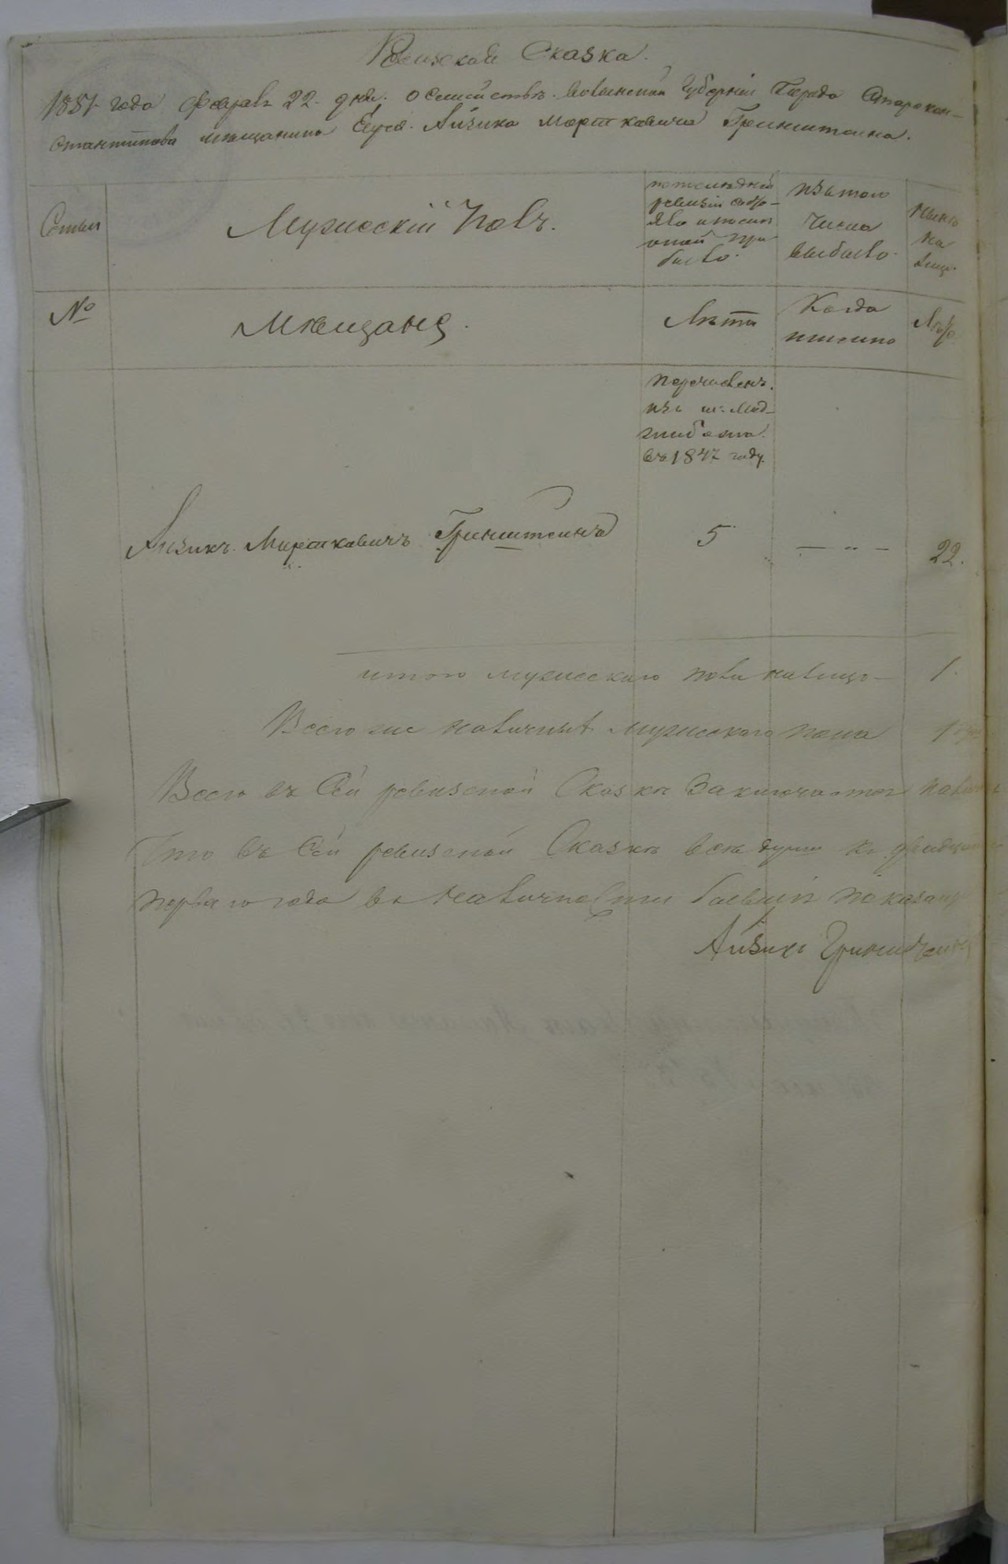 Ревизская Сказка.
1851 года февраля 22 дня. о семействе Волынской Губерніи Города Старокон-
стантинова мещанина Еврея Айзика Мортковича Гринштеина.
Статьи
Мужескій Полъ.
по последней
ревизіи состо-
яло и после
оной при
было.
Изъ того
числа
выбыло.
Ныне
на
лицо
№
Мещане.
Лета
Когда
именно
Лета
перечисленъ
изъ м. Мед-
жибожа
въ 1847 году.
Айзикъ Мортковичъ Гринштеинъ
5
— „ —
22.
итого мужескаго пола налицо —
1.
Всего же наличныхъ мужескаго пола
1
Всего въ Сей ревизской Сказке заключается
Что въ Сей ревизской Сказке все души
перваго года въ наличности бывшіе показаны
Айзикъ Гринштеинъ